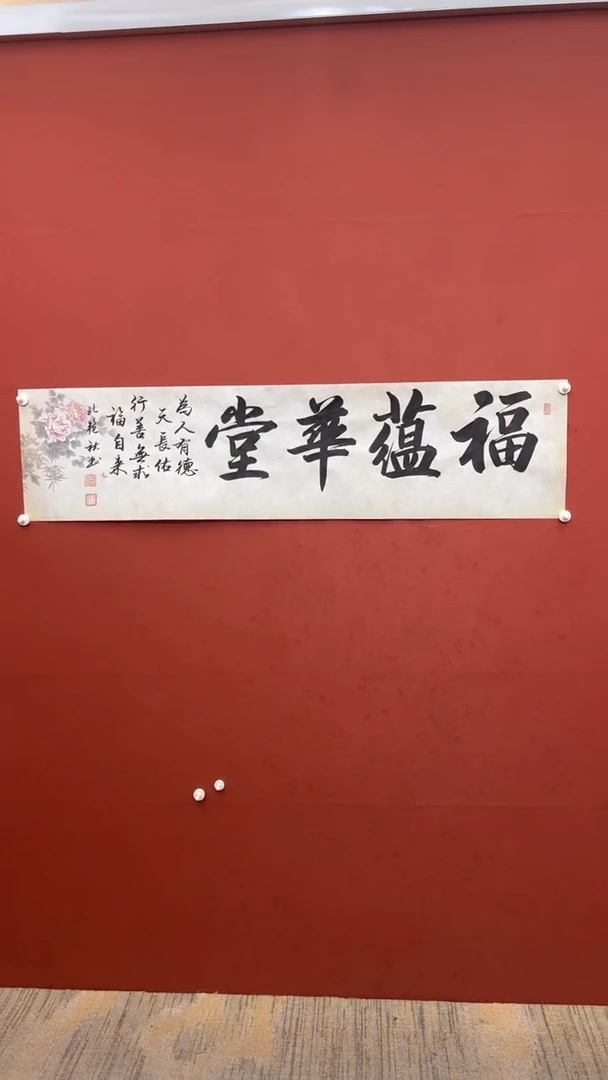 福蘊華堂
為人有德
天長佑
行善無求
福自来